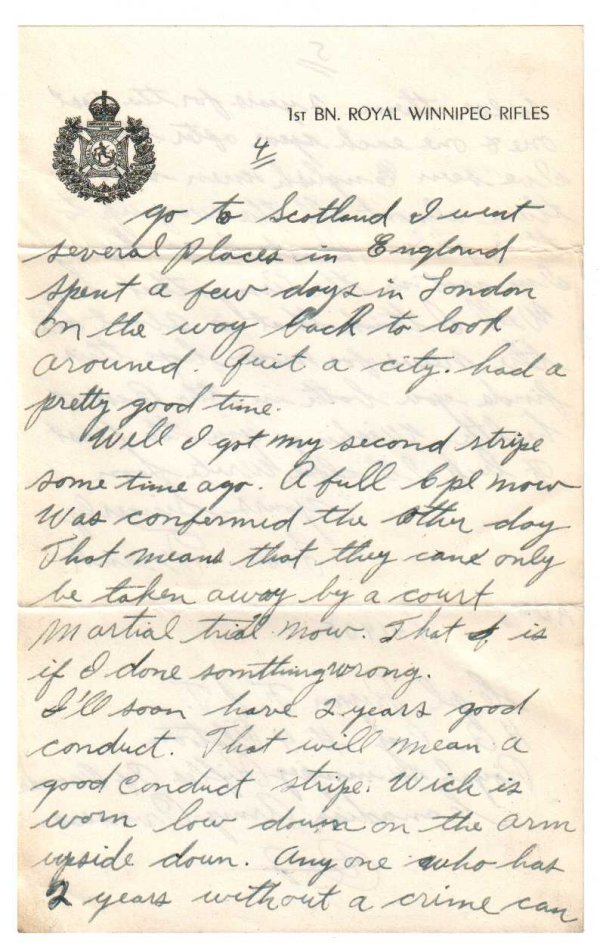 1ST BN. ROYAL WINNIPEG RIFLES
4
go to Scotland I went
several places in England
spent a few days in London
on the way back to look
arouned. Quit a city. had a
pretty good time.
Well I got my second stripe
some time ago. A full Cpl now
Was confermed the other day
That means that they cane only
be taken away by a court
Martial trial now. That is
if I done somthing wrong.
I'll soon have 2 years good
conduct. That will mean a
good conduct stripe. Wich is
worn low down on the arm
upside down. Any one who has
2 years without a crime can